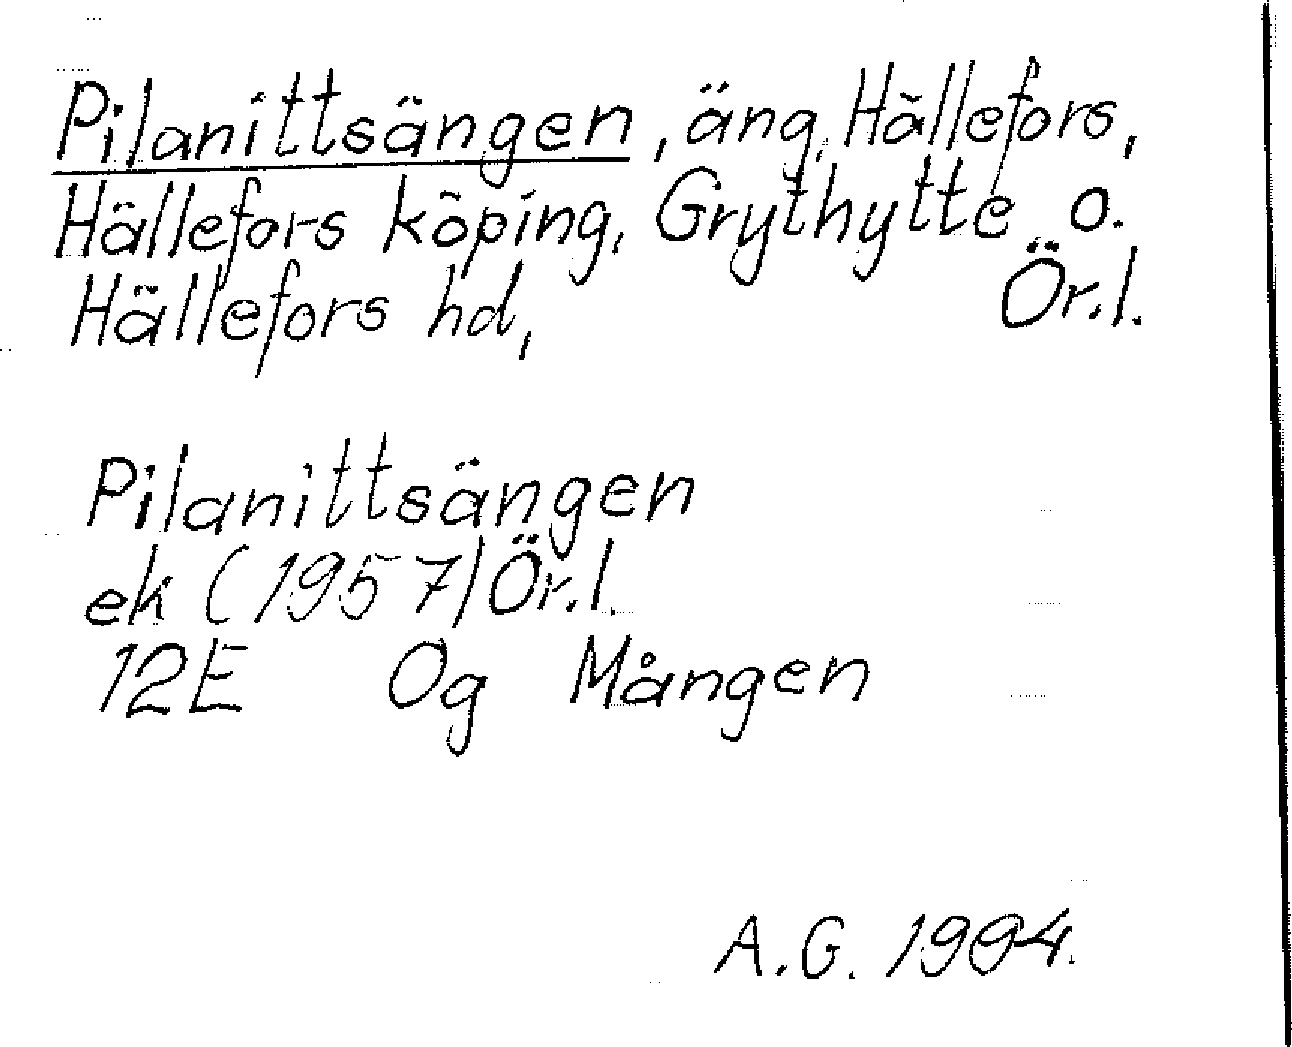 Pilanittsängen, äng, Hällefors,
Hällefors köping, Grythytte o.
Hällefors hd, Ör.l.
Pilanittsängen
ek (1957) Ör.l.
12E Og Mången
A.G. 1994.